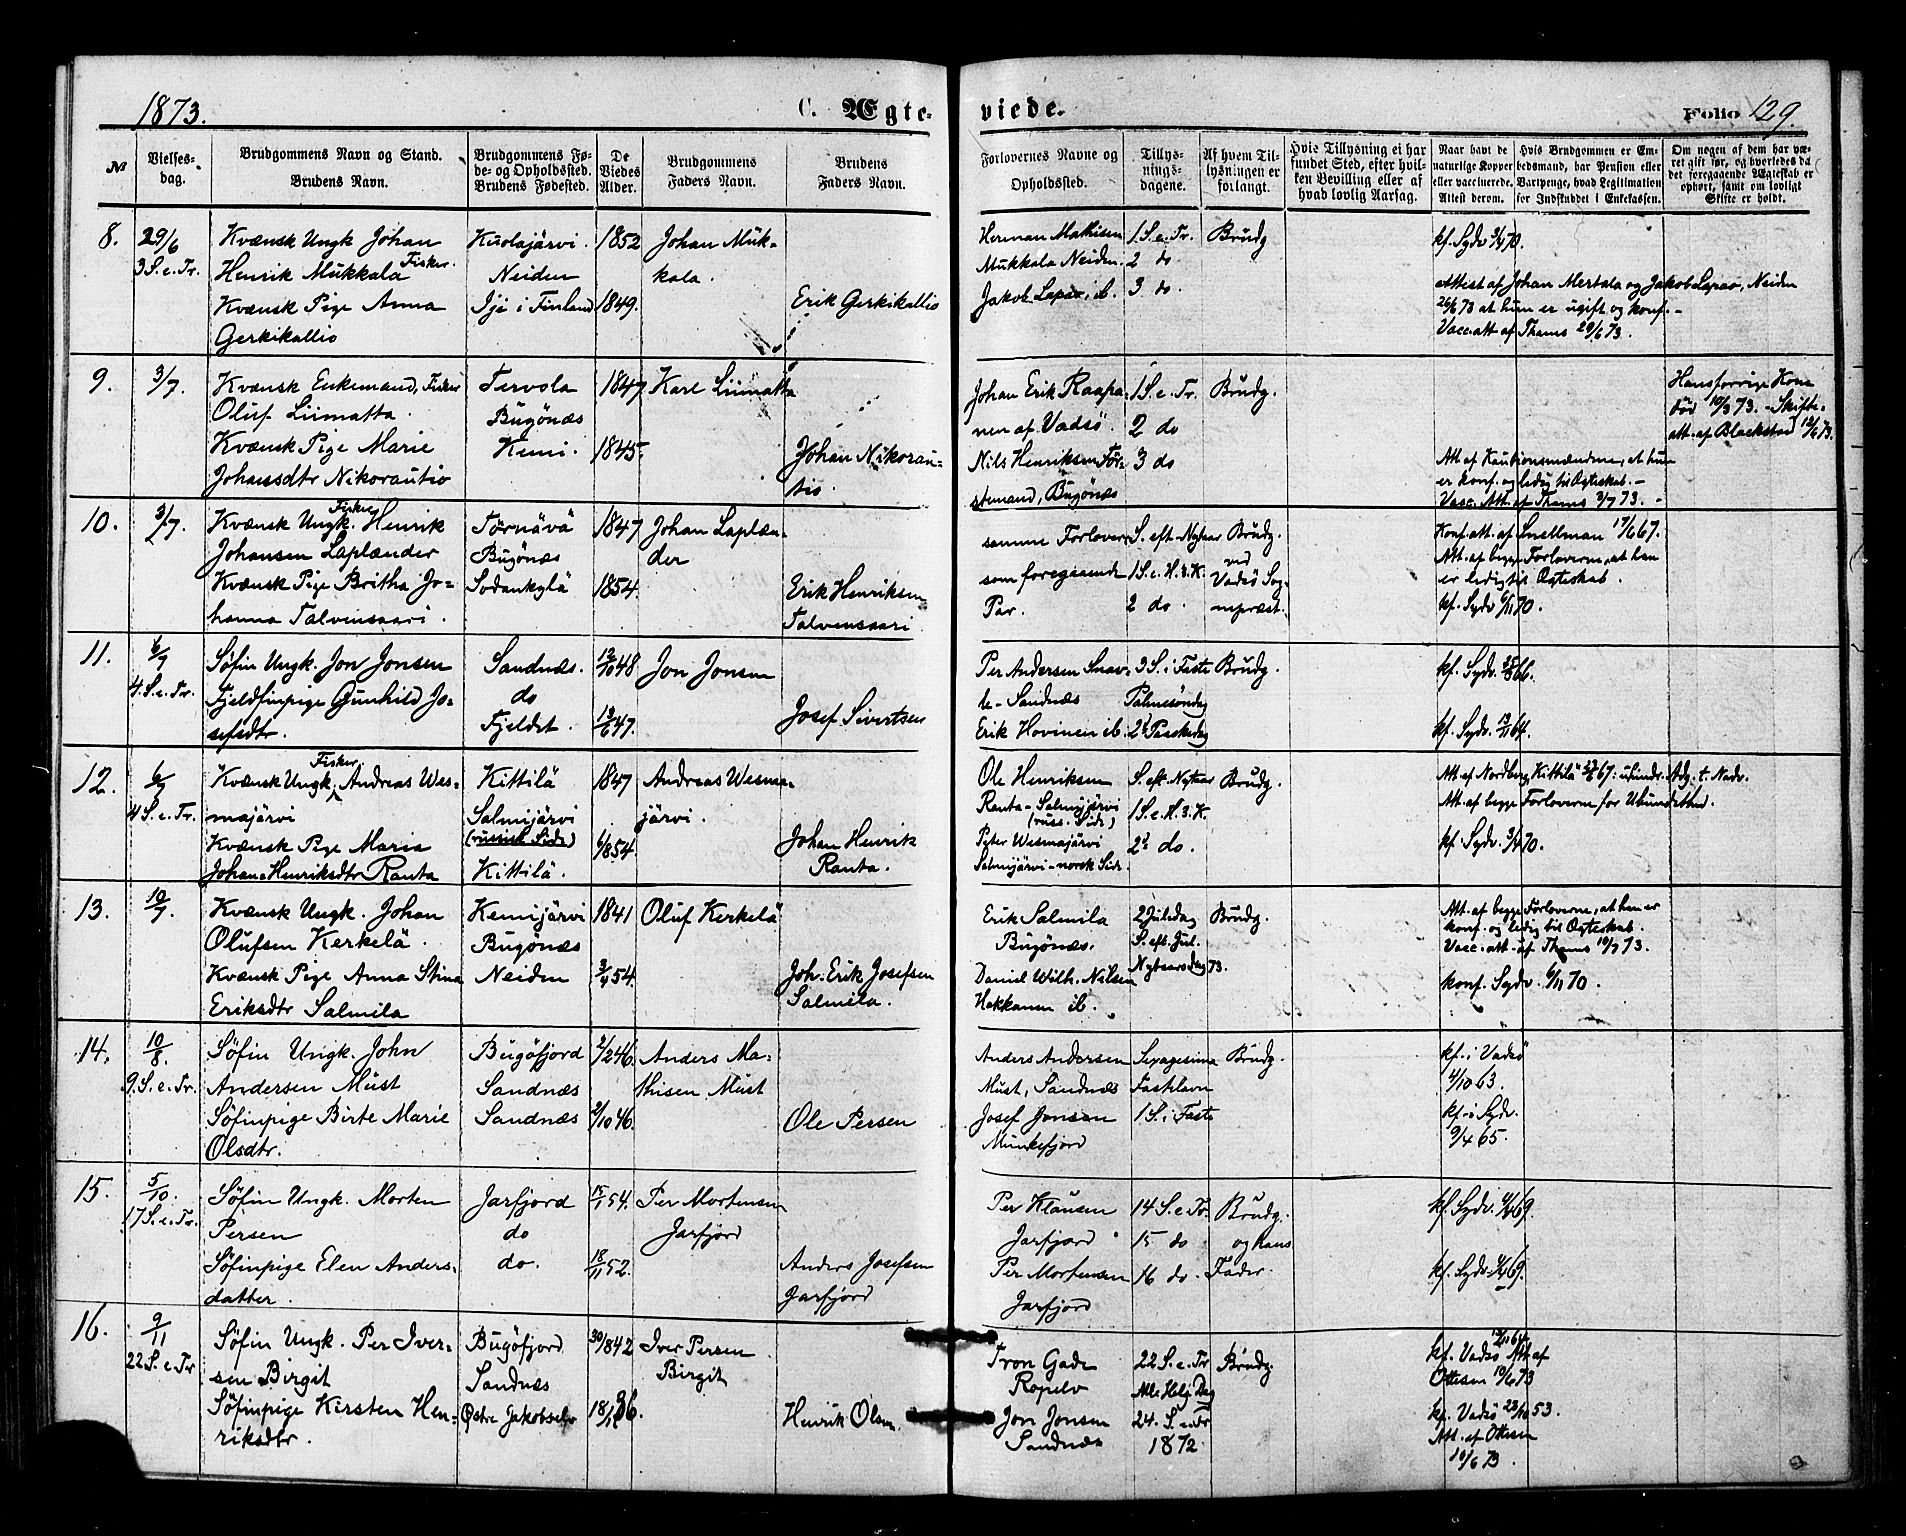 1873.
C. Ægteviede.
Folio 129.
№
Vielsesdag.
Brudgommens Navn og Stand.
Brudens Navn.
Brudgommens Føde- og Opholdssted.
Brudens Fødested.
De Viedes Alder.
Brudgommens Faders Navn.
Brudens Faders Navn.
Forlovernes Navne og Opholdsted.
Tillysningsdagene.
Af hvem Tillysningen er forlangt.
Hvis Tillysning ei har fundet Sted, efter hvilken Bevilling eller af hvad lovlig Aarsag.
Naar havt de naturlige Kopper eller vaccinerede. Attest derom.
Hvis Brudgommen er Embedsmand, har Pension eller Vartpenge, hvad Legitimation for Indskuddet i Enkekassen.
Om nogen af dem har været gift før, og hvorledes da det foregaaende Ægteskab er ophørt, samt om lovligt Skifte er holdt.
8.
29/6
3 S. e. Tr.
Kvænsk Ungk Johan
Henrik Mukkala Fisker.
Kvænsk Pige Anna
Gerkikallio
Kuolajärvi.
Neiden
Ije i Finland
1852
1849.
Johan Mukkala.
Erik Gerkikallio
Herman Mathisen
Mukkala Neiden.
Jakob Lapao, ib.
1 S. e. Tr.
2 do
3 do.
Brudg
Attest af Johan Mertala og Jakob Lapao, Neiden
26/6 73 at hun er ugift og konf. -
Vacc. att. af Thams 29/6 73.
9.
3/7.
Kvænsk Enkemand, Fisker
Oluf Liimatta.
Kvænsk Pige Marie
Johansdtr Nikorautio
Tervola
Bugönæs
Kemi.
1847
1845.
Karl Liimatta
Johan Nikorautio.
Johan Erik Raapanen af Vadsö.
Nils Henriksen Förstemand, Bugönæs
1 S. e. Tr.
2 do
3 do
Brudg.
Att. af Kautionsmændene, at hun
er konf. og ledig til Ægteskab. -
Vacc. Att. af Thams 3/7 73. -
Hans forrige Kone
död 10/3 73. - Skifteatt. af Blackstad 12/6 73.
10.
3/7.
Kvænsk Ungk. Fisker Henrik
Johansen Laplænder
Kvænsk Pige Britha Johanna Talvensaari.
Törnävä
Bugönæs
Sodankylä
1847
1854.
Johan Laplænder
Erik Henriksen
Talvensaari
samme Forlovere
som foregaaende
Par.
S. eft. Nytaar
1 S. e. H. 3. K.
2 do.
Brudg.
ved
Vadsö Sognepræst.
Konf. att. af Snellman 17/6 67.
Att. af begge Forloverne, at han
er ledig til Ægteskab.
kf. Sydv 6/11 70.
11.
6/7
4. S. e. Tr.
Söfin Ungk. Jon Jonsen
Fjeldfinpige Gunhild Josefsdtr.
Sandnæs.
do
Fjeldet.
12/10 48
47.
Jon Jonsen
Josef Sivertsen
Per Andersen
Sandnæs
Erik Hovinen ib.
3 S. i Faste
Palmesöndag
2. Paaskedag
Brudg.
kf. Sydv. 66.
kf. Sydv. 64.
12.
6/7
4 S. e. Tr.
Kvænsk Ungk, Fisker Andreas Wesmajärvi
Kvænsk Pige Maria
Johan-Henriksdtr Ranta
Kittilä
Salmijärvi
(russisk Side)
Kittilä.
1847
6/8 54.
Andreas Wesmajärvi.
Johan Henrik
Ranta.
Ole Henriksen
Ranta - Salmijärvi
(russ. Side)
Peter Wesmajärvi
Salmijärvi - norsk Side.
S. eft. Nytaar
1 S. e. H. 3. K.
2. do.
Brudg.
Att. af Nordberg Kittilä 67: uhindr. Adg. t. Nadv.
Att. af begge Forloverne for Ubundethed.
kf. Sydv. 70.
13.
10/7.
Kvænsk Ungk. Johan
Olufsen Kerkelä.
Kvænsk Pige Anna Stina
Eriksdtr Salmila
Kemijärvi
Bugönæs
Neiden
1841
54.
Oluf Kerkelä
Joh. Erik Josefsen
Salmila.
Erik Salmila
Bugönæs.
Daniel Wilh. Nilsen
Hakkanen ib.
2 Juledag
S. eft. Jul.
Nytaarsdag 73.
Brudg.
Att. af begge Forloverne, at han er
konf. og ledig til Ægteskab.
Vacc. att. af Thams 10/7 73.
konf. Sydv. 6/11 70.
14.
10/8.
9. S. e. Tr.
Söfin Ungk. John
Andersen Must
Söfinpige Birte Marie
Olsdtr.
Bugöfjord
Sandnæs
Sandnæs
2/2 46.
2/10 46.
Anders Mathisen Must
Ole Persen
Anders Andersen
Must, Sandnæs
Josef Jonsen
Munkefjord
Sexagesima
Fastelavn
1 S. i Faste
Brudg.
kf. i Vadsö
4/10 63.
kf. i Sydv.
9/4 65.
15.
5/10.
17 S. e. Tr.
Söfin Ungk. Morten
Persen
Söfinpige Elen Andersdatter.
Jarfjord
do
do.
15/1 54.
18/11 52.
Per Mortensen
Jarfjord
Anders Josefsen
Jarfjord
Per Klausen
Jarfjord
Per Mortensen
Jarfjord
14 S. e. Tr.
15 do
16 do.
Brudg.
og hans
Fader.
kf. Sydv. 69.
kf. Sydv. 69.
16.
9/11
22 S. e. Tr
Söfin Ungk. Per Iversen Birgit
Söfinpige Kirsten Henriksdtr.
Bugöfjord
Sandnæs
Østre Jakobselv
30/8 42
36.
Iver Persen
Birgit
Henrik Olsen.
Tron Gade
Ropelv
Jon Jonsen
Sandnæs
22 S. e. Tr
Alle Helg. Dag
24. S. e. Tr
1872.
Brudg.
kf. Vadsö 64. Att. af
Ottesen 10/6 73
kf. Vadsö 23/10 53.
Att. af Ottesen
10/6 73.